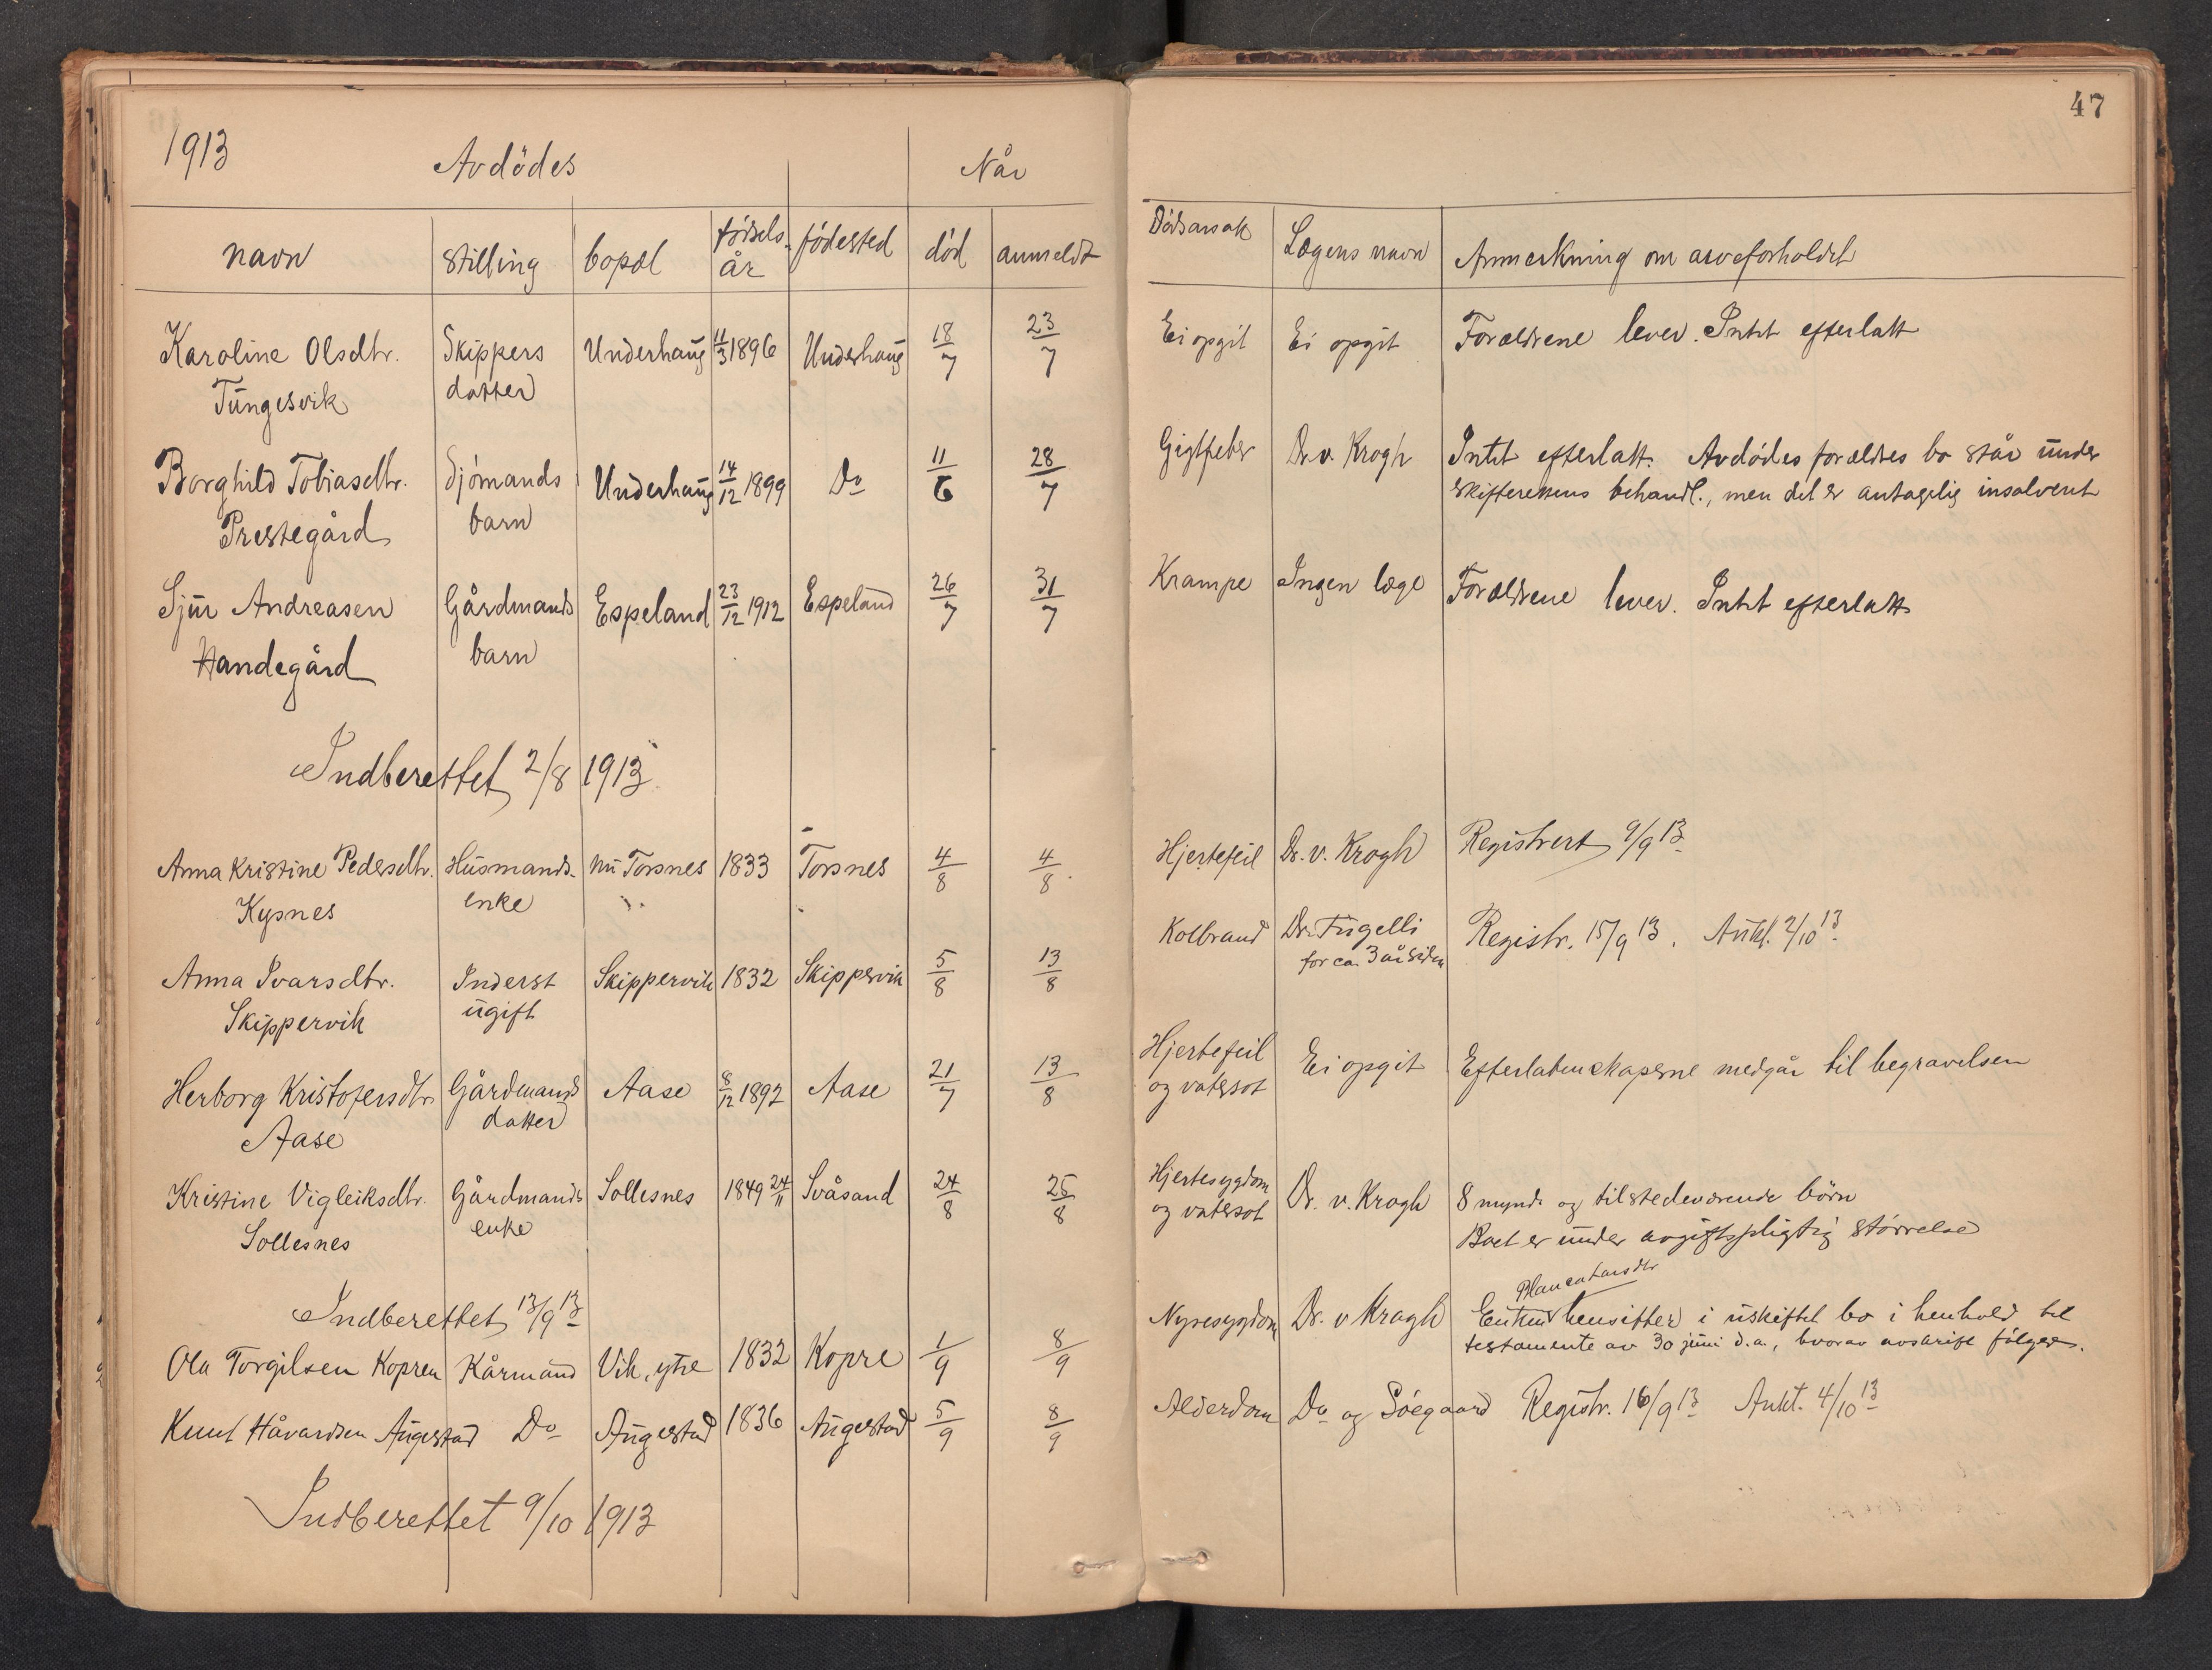 47
1913 Avdödes Når
navn stilling bopæl fødsels-år fødested død anmeldt Dødsarsak Lægens navn Anmerkning om arveforholdet
Karoline Olsdtr. Skippers Underhaug 11/3 1896 Underhaug 18/7 23/7 Ei opgit Ei opgit Forældrene lever. Intet efterlatt
Tungesvik datter
Borghild Tobiasdtr. Sjømands Underhaug 14/12 1899 Do 11/6 28/7 Gigtfeber Dr. v. Krogh Intet efterlatt. Avdødes forældres bo står under
Prestegård barn skifterettens behandl., men det er antagelig insolvent
Sjur Andreasen Gårdmands Espeland 23/12 1912 Espeland 26/7 31/7 Krampe Ingen læge Forældrene lever. Intet efterlatt
Handegård barn
Indberettet 2/8 1913
Anna Kristine Pedersdtr. Husmands- nu Torsnes 1833 Torsnes 4/8 4/8. Hjertefeil Dr. v. Krogh Registrert 9/9 13
Kysnes enke
Anna Ivarsdtr. Inderst Skippervik 1832 Skippervik 5/8 13/8 Kolbrand Dr. Fugelli Registr. 15/9 13. Aukt. 2/10 13
Skippervik ugift for ca. 3 år siden
Herborg Kristofersdtr Gårdmands Aase 8/12 1892 Aase 21/7 13/8 Hjertefeil Ei opgit Efterladenskaperne medgår til begravelsen
Aase datter og vatersot
Kristine Vigleiksdtr. Gårdmands Sollesnes 1849 24/11 Svåsand 24/8 25/8 Hjertesygdom Dr. v. Krogh 8 mynd. og tilstedeværende börn
Sollesnes enke og vatersot Boet er under avgiftspligtig størrelse
Indberettet 13/9 13
Ola Torgilsen Kopren Kårmand Vik, ytre 1832 Kopre 1/9 8/9 Nyresygdom Dr. v Krogh Enken hensitter i uskiftet bo i henhold til
testamente av 30 juni d.a., hvorav avskrift følger.
Knut Håvardsen Augestad Do Augestad 1836 Augestad 5/9 8/9 Alderdom Do og Söegaard Registr. 16/9 13 Aukt. 4/10 13
Indberettet 9/10 1913